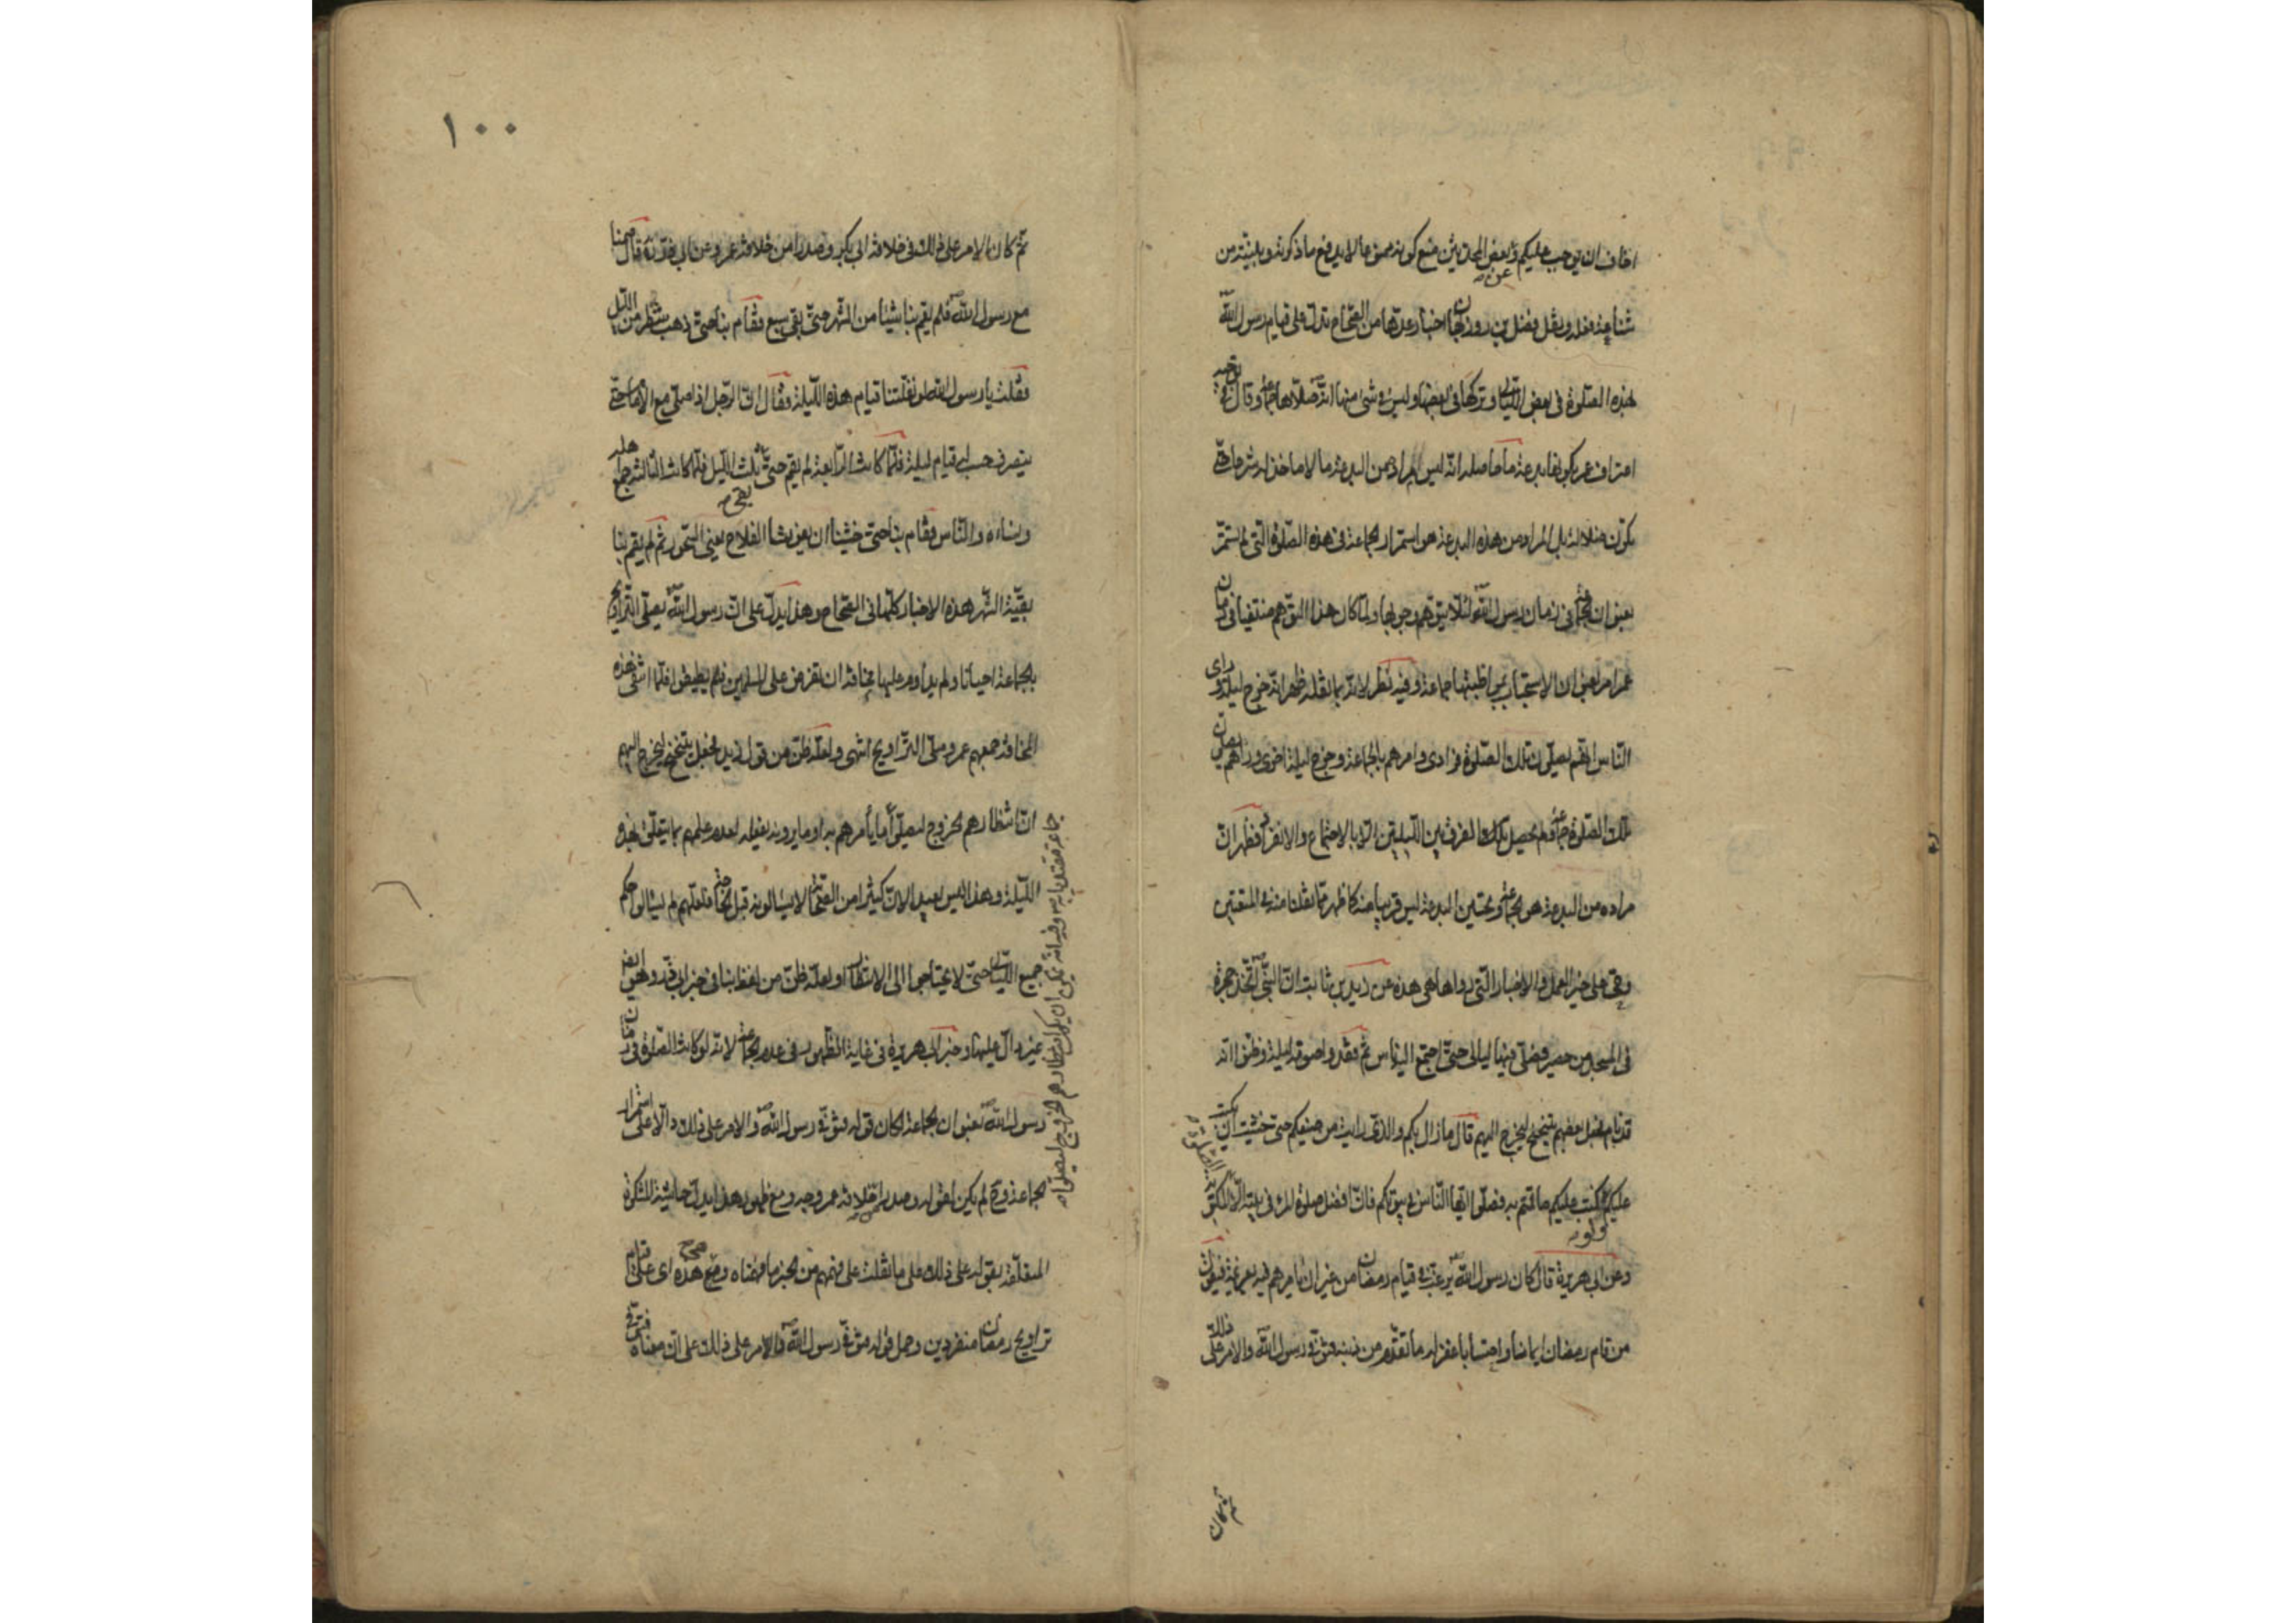 اخاف ان يوجب عليكم وبعض المحدثين منع كونه ممنوعا لا يدفع ما ذكرنه وبينته من
شناعة فعله ونقل فضل بن روزبهان اخبار عدتها من الصحاح تدل على قيام رسول الله
لهذه الصلوة فى بعض الليالى وتركها فى بعضها وليس فى شئ منها انه صلاها جماعة وقال فى توجيه
اعتراف عمر بكونها بدعة ما حاصله انه ليس المراد من البدعة ما لا ماخذ له شرعا حتى
يكون ضلالة بل المراد من هذه البدعة هو استمرار الجماعة فى هذه الصلوة التى لم يستمر
بعنوان الجماعة فى زمان رسول الله لئلا يتوهم وجوبها ولما كان هذا التوهم منتفيا فى زمان
عمر امر بعنوان الاستحباب بمواظبتها جماعة وفيه نظر لانه بما نقله ظهر انه خرج ليلة وراى
الناس انهم يصلون تلك الصلوة فرادى وامرهم بالجماعة وخرج ليلة اخرى وراهم يصلون
تلك الصلوة جماعة فلم يحصل الفرق بين الليلتين الا بالاجتماع والانفراد فظهر ان
مراده من البدعة هو الجماعة وتحسين البدعة ليس قريبا منه كما ظهر مما نقلنا عنه فى المتعتين
وحى على خير العمل والاخبار التى رواها هى هذه عن زيد بن ثابت ان النبى اتخذ حجرة
فى المسجد من حصير فصلى فيها ليالى حتى اجتمع اليه ناس ثم فقدوا صوته ليلة وظنوا انه
قد نام فجعل بعضهم يتنحنح ليخرج اليهم قال ما زال بكم الذى رايت من صنيعكم حتى خشيت ان يكتب
عليكم ولو كتب عليكم ما قمتم به فصلوا ايها الناس فى بيوتكم فان افضل صلوة المرء فى بيته الا الصلوة المكتوبة
وعن ابى هريرة قال كان رسول الله يرغب فى قيام رمضان من غير ان يامرهم فيه بعزيمة فيقول
من قام رمضان ايمانا واحتسابا غفر له ما تقدم من ذنبه فتوفى رسول الله والامر على ذلك
ثم كان
١٠٠
ثم كان الامر على ذلك فى خلافة ابى بكر وصدرا من خلافة عمر وعن ابى ذر قال صمنا
مع رسول الله فلم يقم بنا شيئا من الشهر حتى بقى سبع فقام بنا حتى ذهب شطر من الليل
فقلت يا رسول الله لو نفلتنا قيام هذه الليلة فقال ان الرجل اذا صلى مع الامام حتى
ينصرف حسب له قيام ليلة فلما كانت الرابعة لم يقم حتى بقى ثلث الليل فلما كانت الثالثة جمع اهله
ونساءه والناس فقام بنا حتى خشينا ان يفوتنا الفلاح يعنى السحور ثم لم يقم بنا
بقية الشهر هذه الاخبار كلها فى الصحاح وهذا يدل على ان رسول الله يصلى التراويح
بالجماعة احيانا ولم يداوم عليها مخافة ان تفرض على المسلمين فلم يطيقوا فلما انتفى هذه
المخافة جمعهم عمر وصلى التراويح انتهى ولعله ظن من قول زيد فجعل يتنحنح ليخرج اليهم
ان انتظارهم لخروج ليصلوا ما يأمرهم به او ما يرونه يفعله لعدم علمهم بما يتعلق بهذه
الليلة وهذا ليس ببعيد لان كثيرا من الصحابة لا يسالونه قبل فلعلهم لم يسالوا حكم
جميع الليالى حتى لا يحتاجوا الى الانتظار او لعله ظن من لفظ بنا فى خبر ابى ذر وهو ايضا
غير دال عليها وخبر ابى هريرة فى غاية الظهور فى عدم الجماعة لانه لو كانت الصلوة فى زمان
رسول الله بعنوان الجماعة لكان قوله فتوفى رسول الله والامر على ذلك دالا على استمرار
الجماعة وح لم يكن لقوله وصدرا من خلافة عمر وجه ومع ظهور هذا يدل حاشية المشكوة
المتعلقة بقوله على ذلك على ما نقلت على فهمهم من الخبر ما فهمناه وصح هذه اى على قيام
تراويح رمضان منفردين وحمل قوله فتوفى رسول الله والامر على ذلك على ان معناه فتوفى